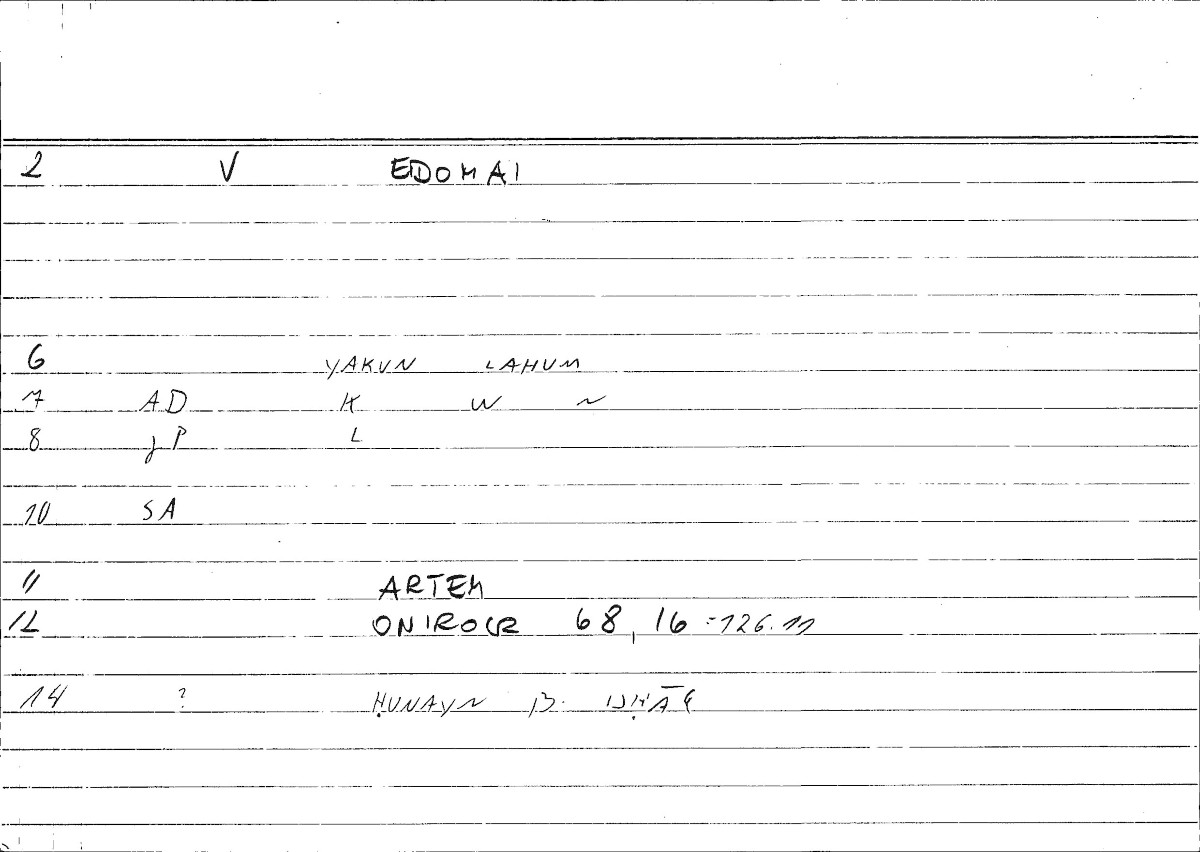 2 V EDOMAI
6 YAKUN LAHUM
7 AD K W N
8 JP L
10 SA
11 ARTEM
12 ONIROCR 68, 16 = 126.11
14 ? ḤUNAYN B. ISḤĀQ